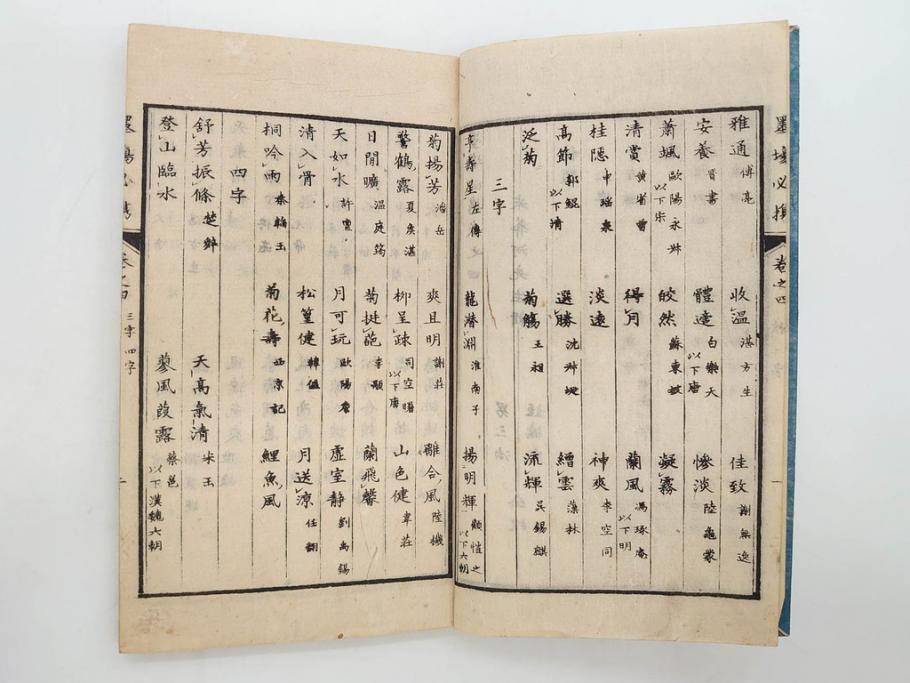 墨場必携 卷之四
雅通 傅亮 收温 湛方生 佳致 謝無逸
安養 晋書 體達 白樂天 以下唐 慘淡 陸龜蒙
蕭颯 歐陽永叔 以下宋 皎然 蘇東坡 凝霧
清賞 黄省曾 得月 蘭風 馮琢庵 以下明
桂隱 申瑶泉 淡遠 神爽 李空同
高節 郭鯤 以下清 選勝 沈叔埏 繒雲 藻林
泛菊 菊觴 王祖 流輝 吳錫麒
三字
辛壽星 左傳 龍潛淵 淮南子 揚明輝 顧愷之 以下六朝
菊揚芳 潘岳 爽且明 謝莊 離合風 陸機
警鶴露 夏侯湛 柳呈疎 司空曙 以下唐 山色健 韋莊
日間曠 溫庭筠 菊挺葩 李顒 蘭飛馨
天如水 許渾 月可玩 歐陽詹 虚室静 劉禹錫
清入骨 松篁健 韓偓 月送涼 任翻
桐吟雨 秦韜玉 菊花壽 西京記 鯉魚風
四字
舒芳振條 楚辭 天高氣清 宋玉
登山臨水 蓼風葭露 蔡邕 以下漢魏六朝
墨場必携 卷之四 三字 四字